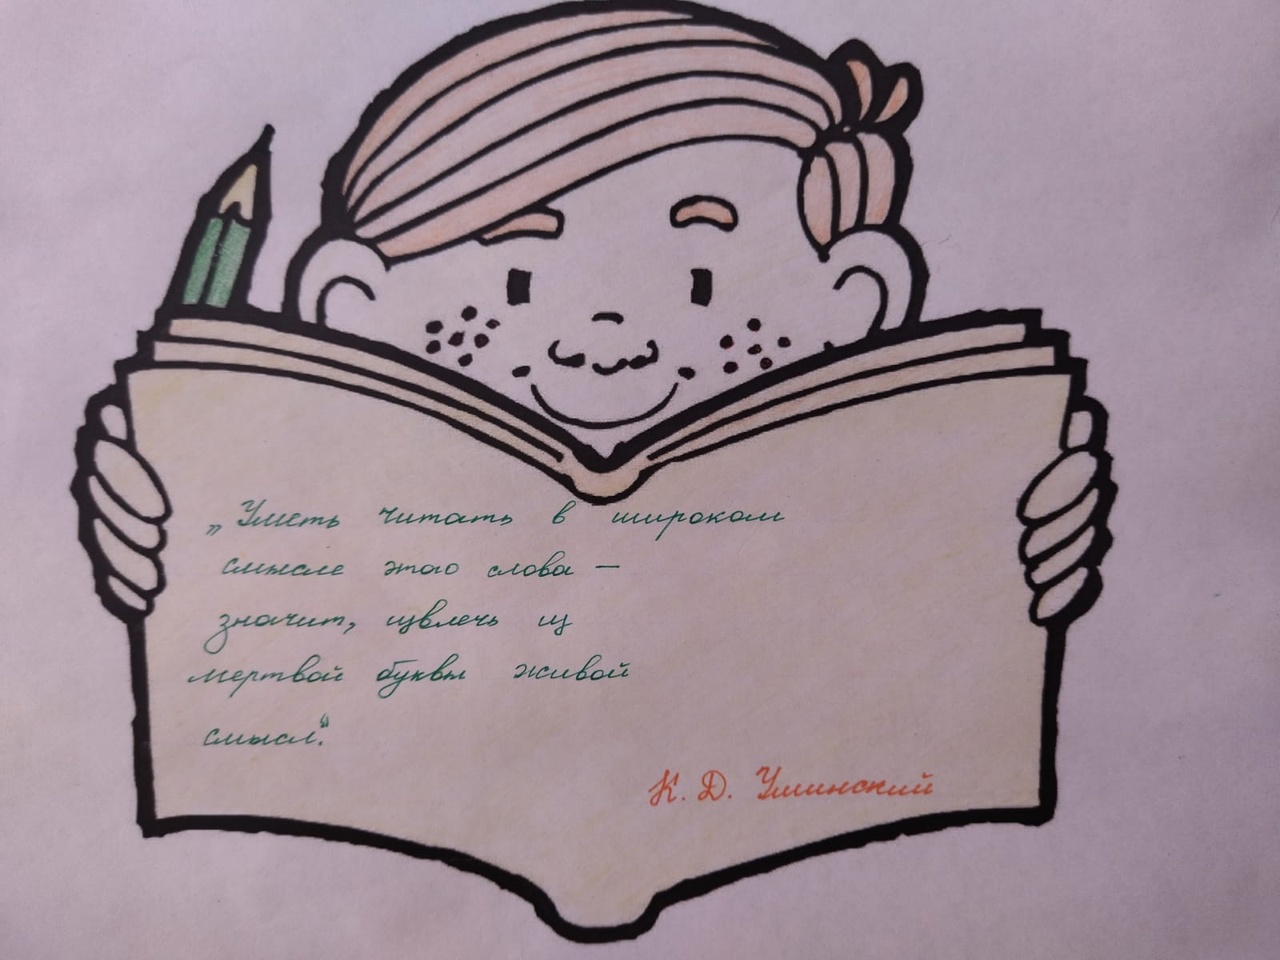 „Уметь читать в широком
смысле этого слова —
значит, извлечь из
мертвой буквы живой
смысл.“
К. Д. Ушинский